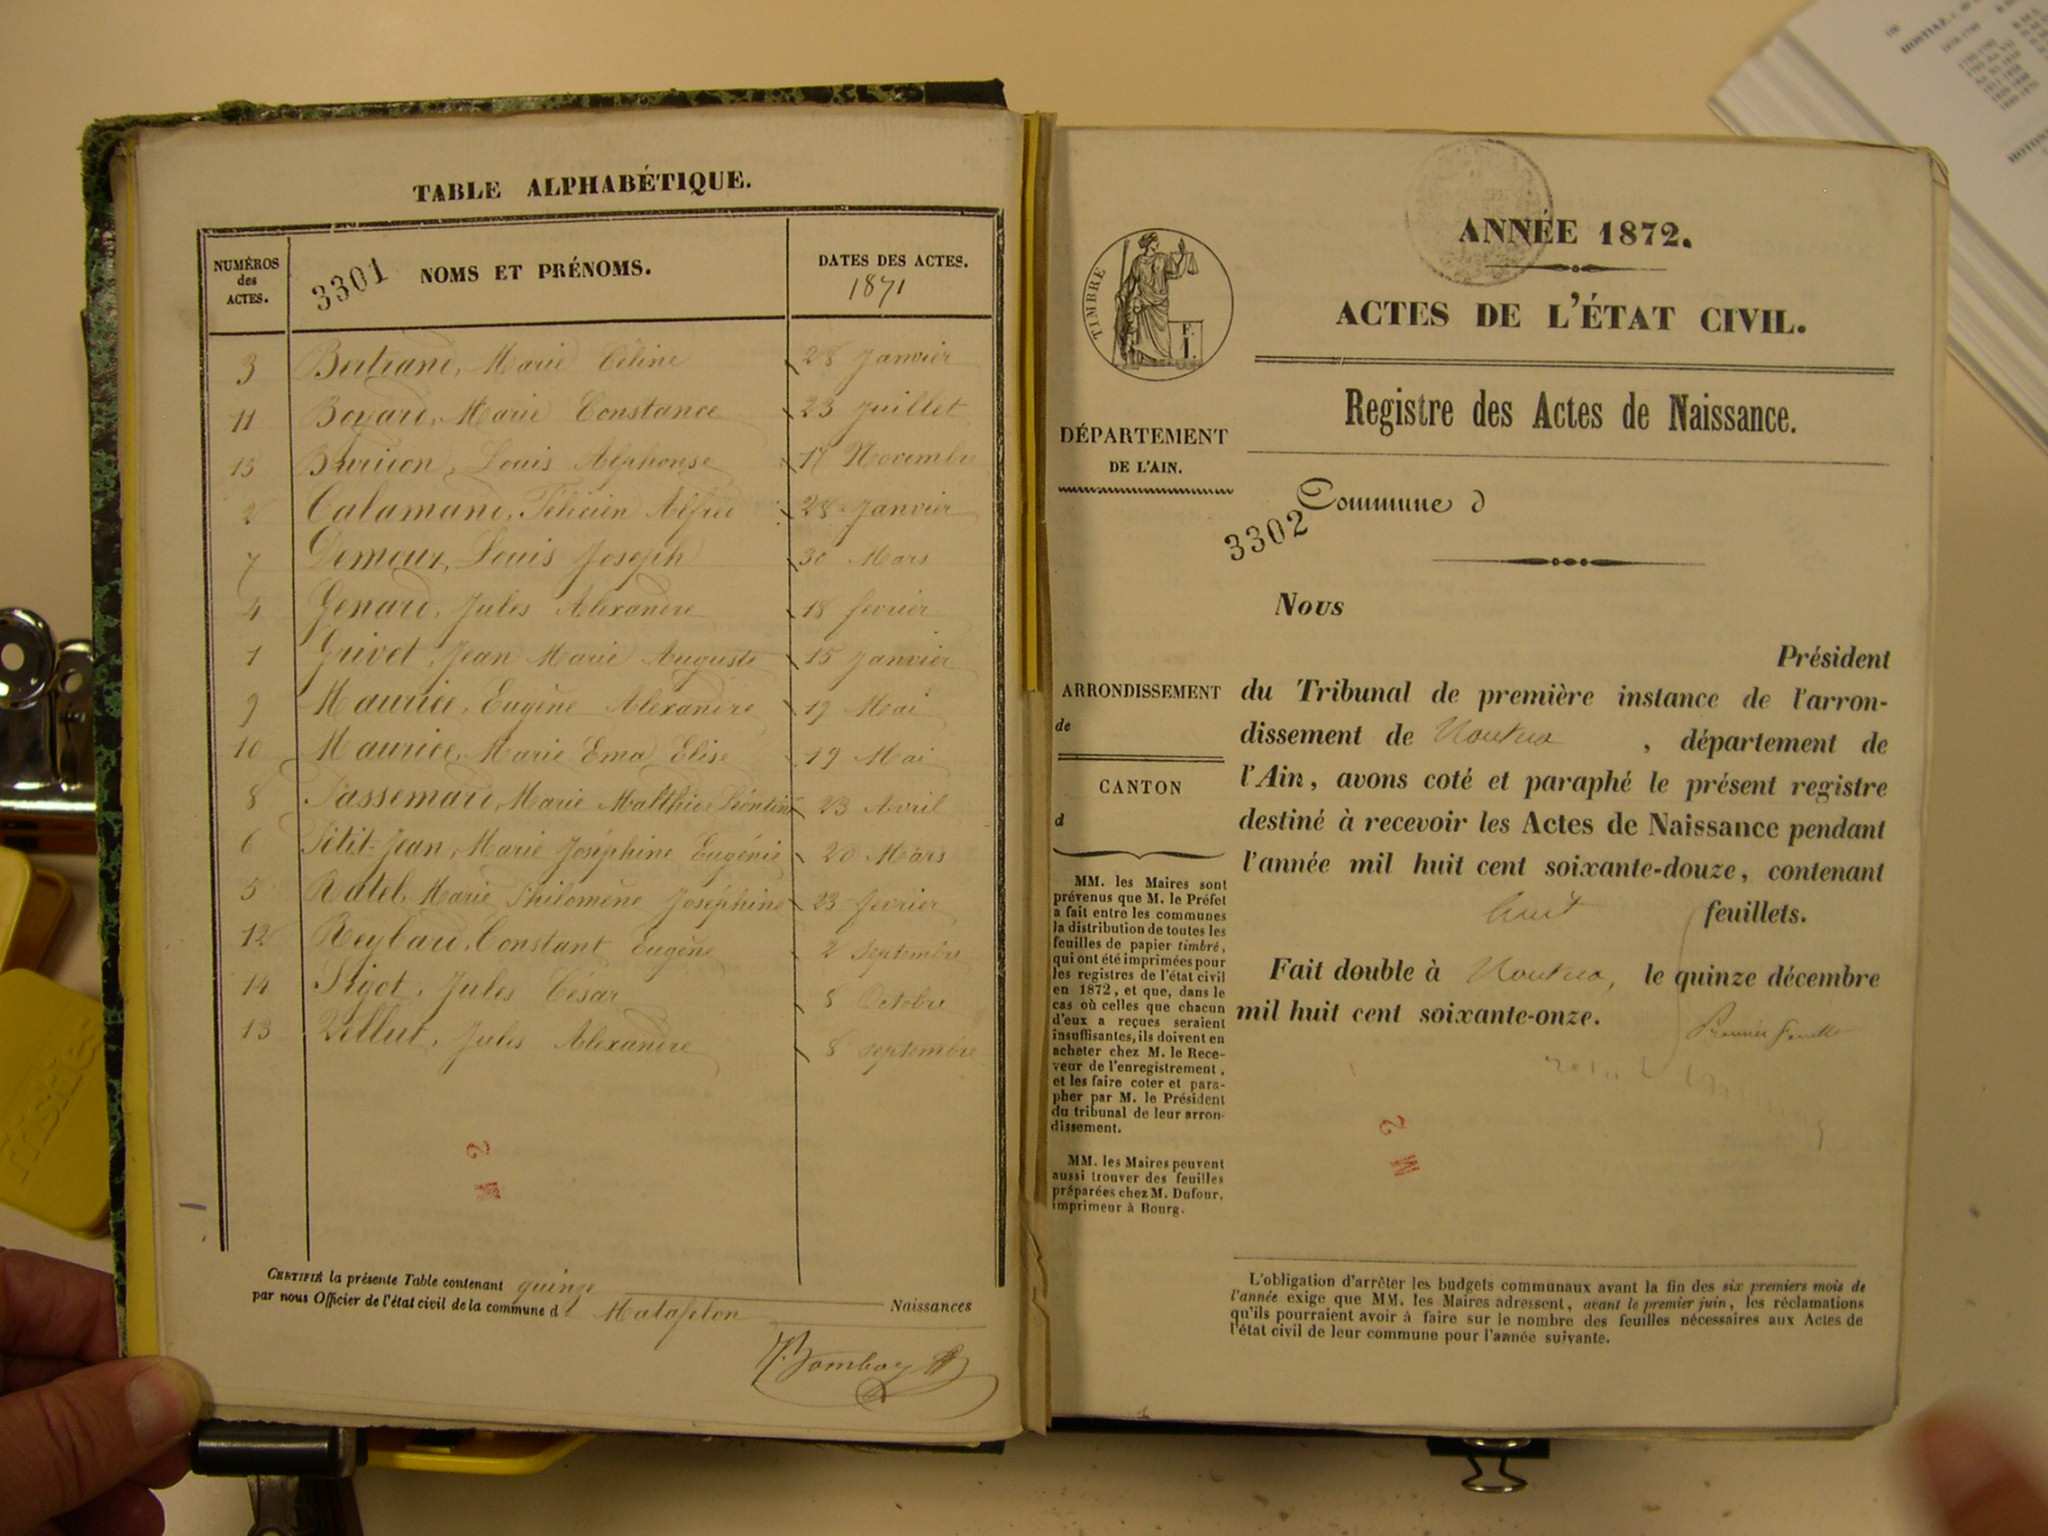 TABLE ALPHABÉTIQUE.
NUMÉROS des ACTES.
3301
NOMS ET PRÉNOMS.
DATES DES ACTES.
1871
3 Bertrand, Marie Céline 28 Janvier
11 Bovard, Marie Constance 23 Juillet
15 Louis Alphonse 17 Novembre
2 Calamand, Félicien Alfred 28 Janvier
7 Demour, Louis Joseph 30 Mars
4 Genard, Jules Alexandre 18 fevrier
1 Grivet, Jean Marie Auguste 15 Janvier
9 Maurice, Eugène Alexandre 19 Mai
10 Maurice, Marie Ema Elise 19 Mai
8 Passemard, Marie Malthie Léontine 23 Avril
6 Petit-Jean, Marie Joséphine Eugénie 20 Mars
5 Ratel, Marie Philomène Joséphine 23 fevrier
12 Reybard, Constant Eugène 2 Septembre
14 Sigot, Jules César 8 Octobre
13 Villut, Jules Alexandre 8 Septembre
M 2
CERTIFIÉ la présente Table contenant quinze Naissances
par nous Officier de l'état civil de la commune d Matafelon
TIMBRE
F.
I.
ANNÉE 1872.
ACTES DE L'ÉTAT CIVIL.
Registre des Actes de Naissance.
DÉPARTEMENT
DE L'AIN.
Commune d
3302
Nous
Président
ARRONDISSEMENT
de
CANTON
d
du Tribunal de première instance de l'arron-
dissement de Nantua , département de
l'Ain, avons coté et paraphé le présent registre
destiné à recevoir les Actes de Naissance pendant
l'année mil huit cent soixante-douze, contenant
huit feuillets.
Fait double à Nantua, le quinze décembre
mil huit cent soixante-onze.
M 2
MM. les Maires sont
prévenus que M. le Préfet
a fait entre les communes
la distribution de toutes les
feuilles de papier timbré,
qui ont été imprimées pour
les registres de l'état civil
en 1872, et que, dans le
cas où celles que chacun
d'eux a reçues seraient
insuffisantes, ils doivent en
acheter chez M. le Rece-
veur de l'enregistrement,
et les faire coter et para-
pher par M. le Président
du tribunal de leur arron-
dissement.
MM. les Maires peuvent
aussi trouver des feuilles
préparées chez M. Dufour,
imprimeur à Bourg.
L'obligation d'arrêter les budgets communaux avant la fin des six premiers mois de
l'année exige que MM. les Maires adressent, avant le premier juin, les réclamations
qu'ils pourraient avoir à faire sur le nombre des feuilles nécessaires aux Actes de
l'état civil de leur commune pour l'année suivante.